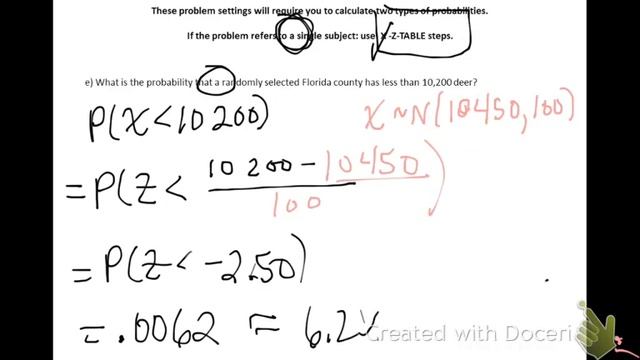 These problem settings will require you to calculate two types of probabilities.
If the problem refers to a single subject: use X-Z-TABLE steps.
e) What is the probability that a randomly selected Florida county has less than 10,200 deer?
P(X<10200) X~N(10450,100)
=P(Z< 10200-10450)
100
=P(Z<-2.50)
=.0062 =
Created with Doceri